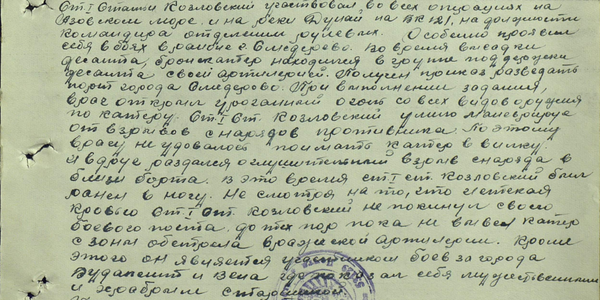 Ст. I Статьи Козловский участвовал во всех операциях на
Азовском море, и на реке Дунай, на БК 121, на должности
Командира отделения рулевых. Особенно проявил
себя в боях в районе г. Смедерово. Во время высадки
десанта, бронекатер находился в группе поддержки
десанта своей артилерией. Получен приказ разведать
порт города Смедерово. При выполнении задания,
враг открыл ураганный огонь со всех видов оружия
по катеру. Ст. I ст. Козловский умело маневрируя
от взрывов снарядов противника. По этому
врагу не удовалось поймать катер в вилку.
И вдруг раздался оглушительный взрыв снаряда в
близи борта. В это время ст. I ст. Козловский был
ранен в ногу. Не смотря на то, что истекая
кровью Ст. I Ст. Козловский не покинул своего
боевого поста, до тех пор пока не вывел катер
с зоны обстрела вражеской артилерии. Кроме
этого он является участником боев за города
Будапешт и Вена где показал себя мужественным
и храбрым старшиной.